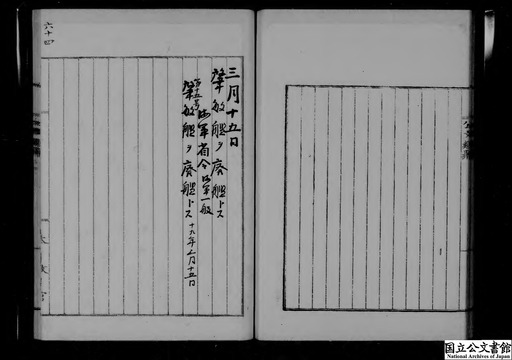 三月十五日
肇敏艦ヲ廃艦トス
海軍省令海軍一般
第十五号
肇敏艦ヲ廃艦トス 十九年三月十五日
六十四
国立公文書館
National Archives of Japan